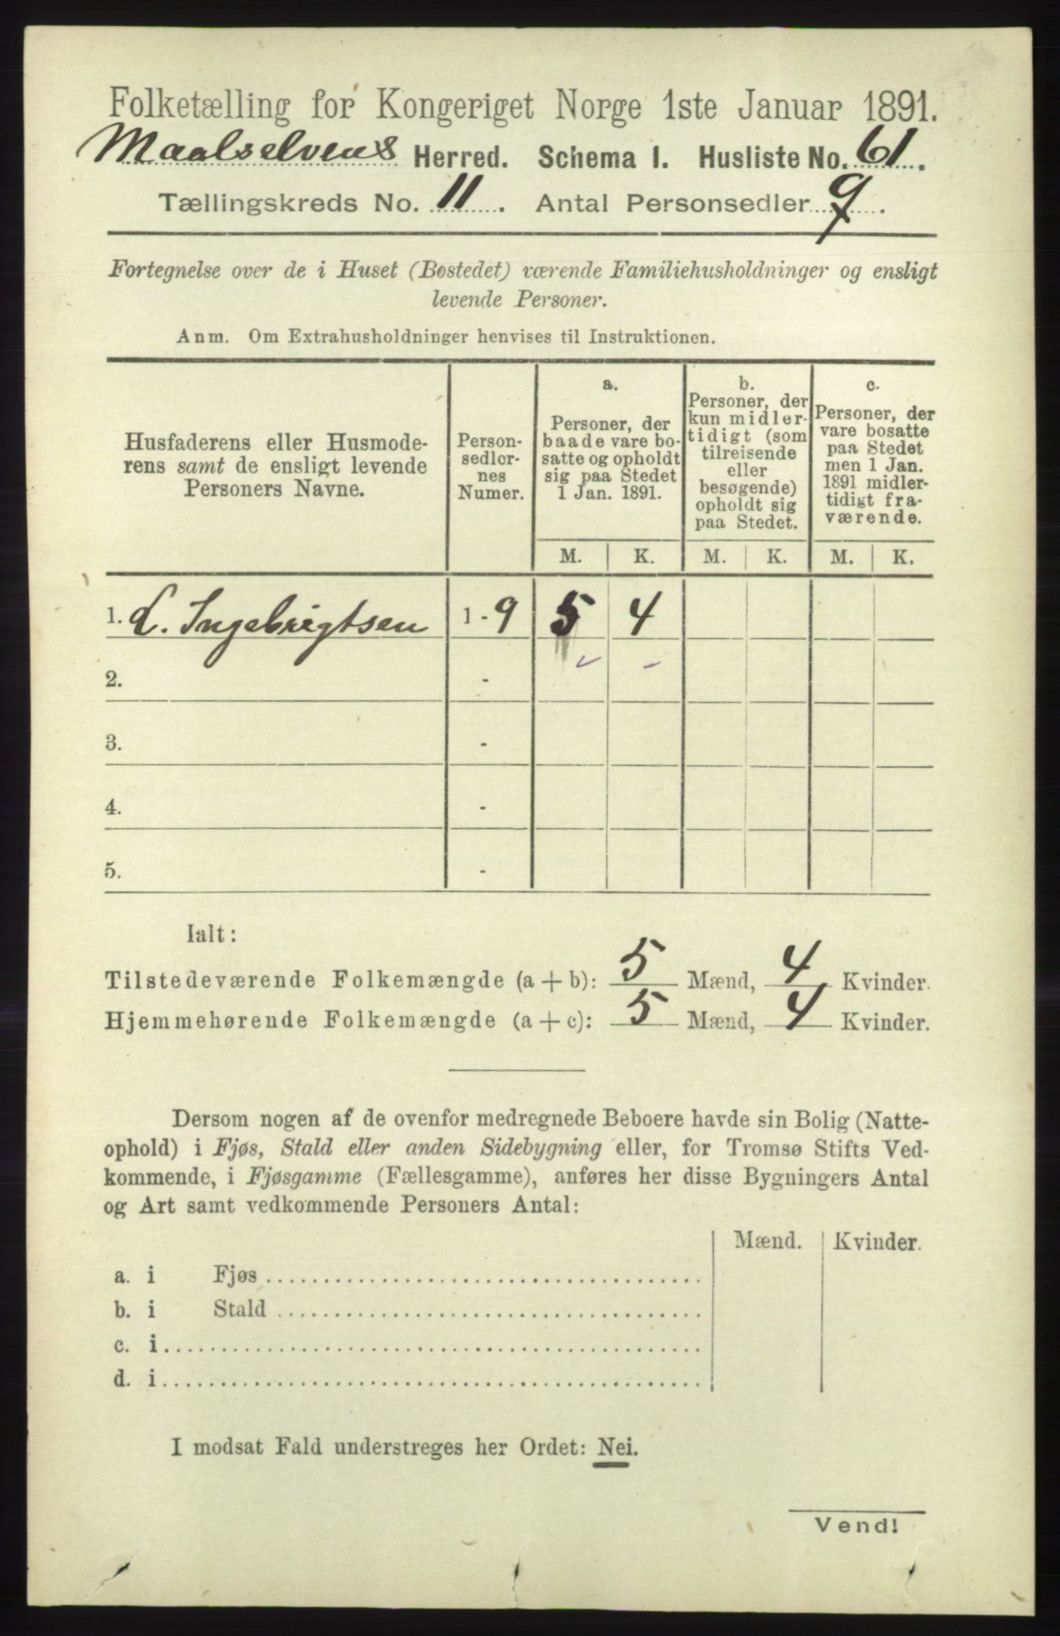 Folketælling for Kongeriget Norge 1ste Januar 1891.
Maalselvens Herred. Schema I. Husliste No. 61.
Tællingskreds No. 11. Antal Personsedler 9.
Fortegnelse over de i Huset (Bostedet) værende Familiehusholdninger og ensligt
levende Personer.
Anm. Om Extrahusholdninger henvises til Instruktionen.
Husfaderens eller Husmode-
rens samt de ensligt levende
Personers Navne.
Person-
sedler-
nes
Numer.
a.
Personer, der
baade vare bo-
satte og opholdt
sig paa Stedet
1 Jan. 1891.
b.
Personer, der
kun midler-
tidigt (som
tilreisende
eller
besøgende)
opholdt sig
paa Stedet.
c.
Personer, der
vare bosatte
paa Stedet
men 1 Jan.
1891 midler-
tidigt fra-
værende.
M. K. M. K. M. K.
1. L. Ingebrigtsen 1 - 9 5 4
2. -
3. -
4. -
5. -
Ialt:
Tilstedeværende Folkemængde (a + b): 5 Mænd, 4 Kvinder.
Hjemmehørende Folkemængde (a + c): 5 Mænd, 4 Kvinder.
Dersom nogen af de ovenfor medregnede Beboere havde sin Bolig (Natte-
ophold) i Fjøs, Stald eller anden Sidebygning eller, for Tromsø Stifts Ved-
kommende, i Fjøsgamme (Fællesgamme), anføres her disse Bygningers Antal
og Art samt vedkommende Personers Antal:
Mænd. Kvinder.
a. i Fjøs
b. i Stald
c. i
d. i
I modsat Fald understreges her Ordet: Nei.
Vend!